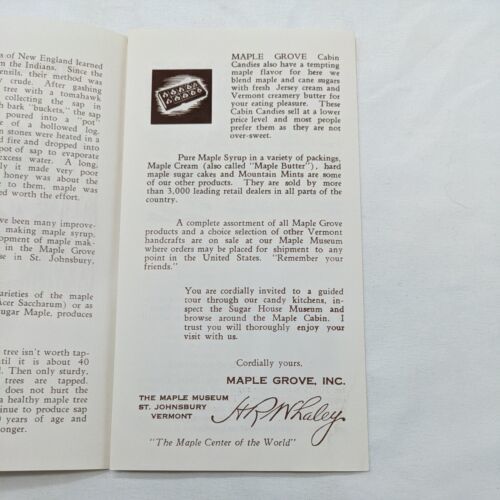 s of New England learned
om the Indians. Since the
ensils, their method was
y crude. After gashing
tree with a tomahawk
collecting the sap in
h bark "buckets," the sap
poured into a "pot"
of a hollowed log.
n stones were heated in a
d fire and dropped into
pot of sap to evaporate
excess water. A long,
ly it made very poor
honey was about the
e to them, maple was
ed worth the effort.
ve been many improve-
making maple syrup,
opment of maple mak-
in the Maple Grove
se in St. Johnsbury,
arieties of the maple
Acer Saccharum) or as
ugar Maple, produces
tree isn't worth tap-
til it is about 40
l. Then only sturdy,
trees are tapped.
does not hurt the
a healthy maple tree
nue to produce sap
0 years of age and
onger.
MAPLE GROVE Cabin
Candies also have a tempting
maple flavor for here we
blend maple and cane sugars
with fresh Jersey cream and
Vermont creamery butter for
your eating pleasure. These
Cabin Candies sell at a lower
price level and most people
prefer them as they are not
over-sweet.
Pure Maple Syrup in a variety of packings,
Maple Cream (also called "Maple Butter"), hard
maple sugar cakes and Mountain Mints are some
of our other products. They are sold by more
than 3,000 leading retail dealers in all parts of the
country.
A complete assortment of all Maple Grove
products and a choice selection of other Vermont
handcrafts are on sale at our Maple Museum
where orders may be placed for shipment to any
point in the United States. "Remember your
friends."
You are cordially invited to a guided
tour through our candy kitchens, in-
spect the Sugar House Museum and
browse around the Maple Cabin. I
trust you will thoroughly enjoy your
visit with us.
Cordially yours,
MAPLE GROVE, INC.
THE MAPLE MUSEUM
ST. JOHNSBURY
VERMONT
H R Whaley
"The Maple Center of the World"